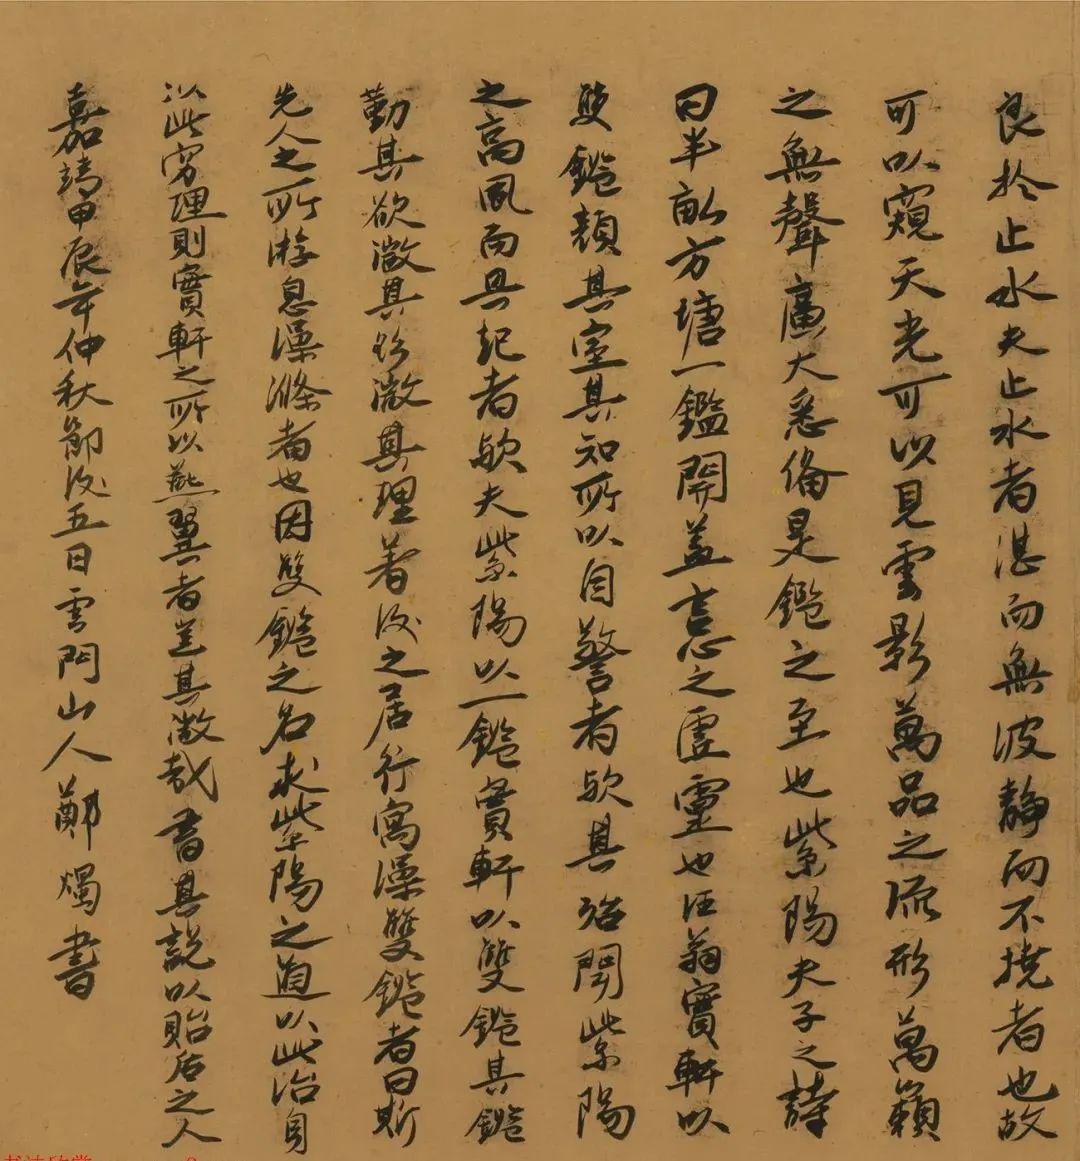 良於止水夫止水者湛而無波靜而不撓者也故
可以窺天光可以見雲影萬品之流形萬籟
之無聲廣大悉俻是鑑之至也紫陽夫子之詩
曰半畝方塘一鑑開盖言心之虛靈也汪翁實軒以
雙鑑顏其室其知所以自警者歟其殆聞紫陽
之高風而興起者歟夫紫陽以一鑑實軒以雙鑑其鑑
勤其欲澂其澂其理著後之居行寓澡雙鑑者曰斯
先人之所游息澡滌者也因雙鑑之名求紫陽之道以此治身
以此窮理則實軒之所以燕翼者豈其微哉書其說以貽后之人
嘉靖甲辰年仲秋節後五日雲門山人鄭燭書